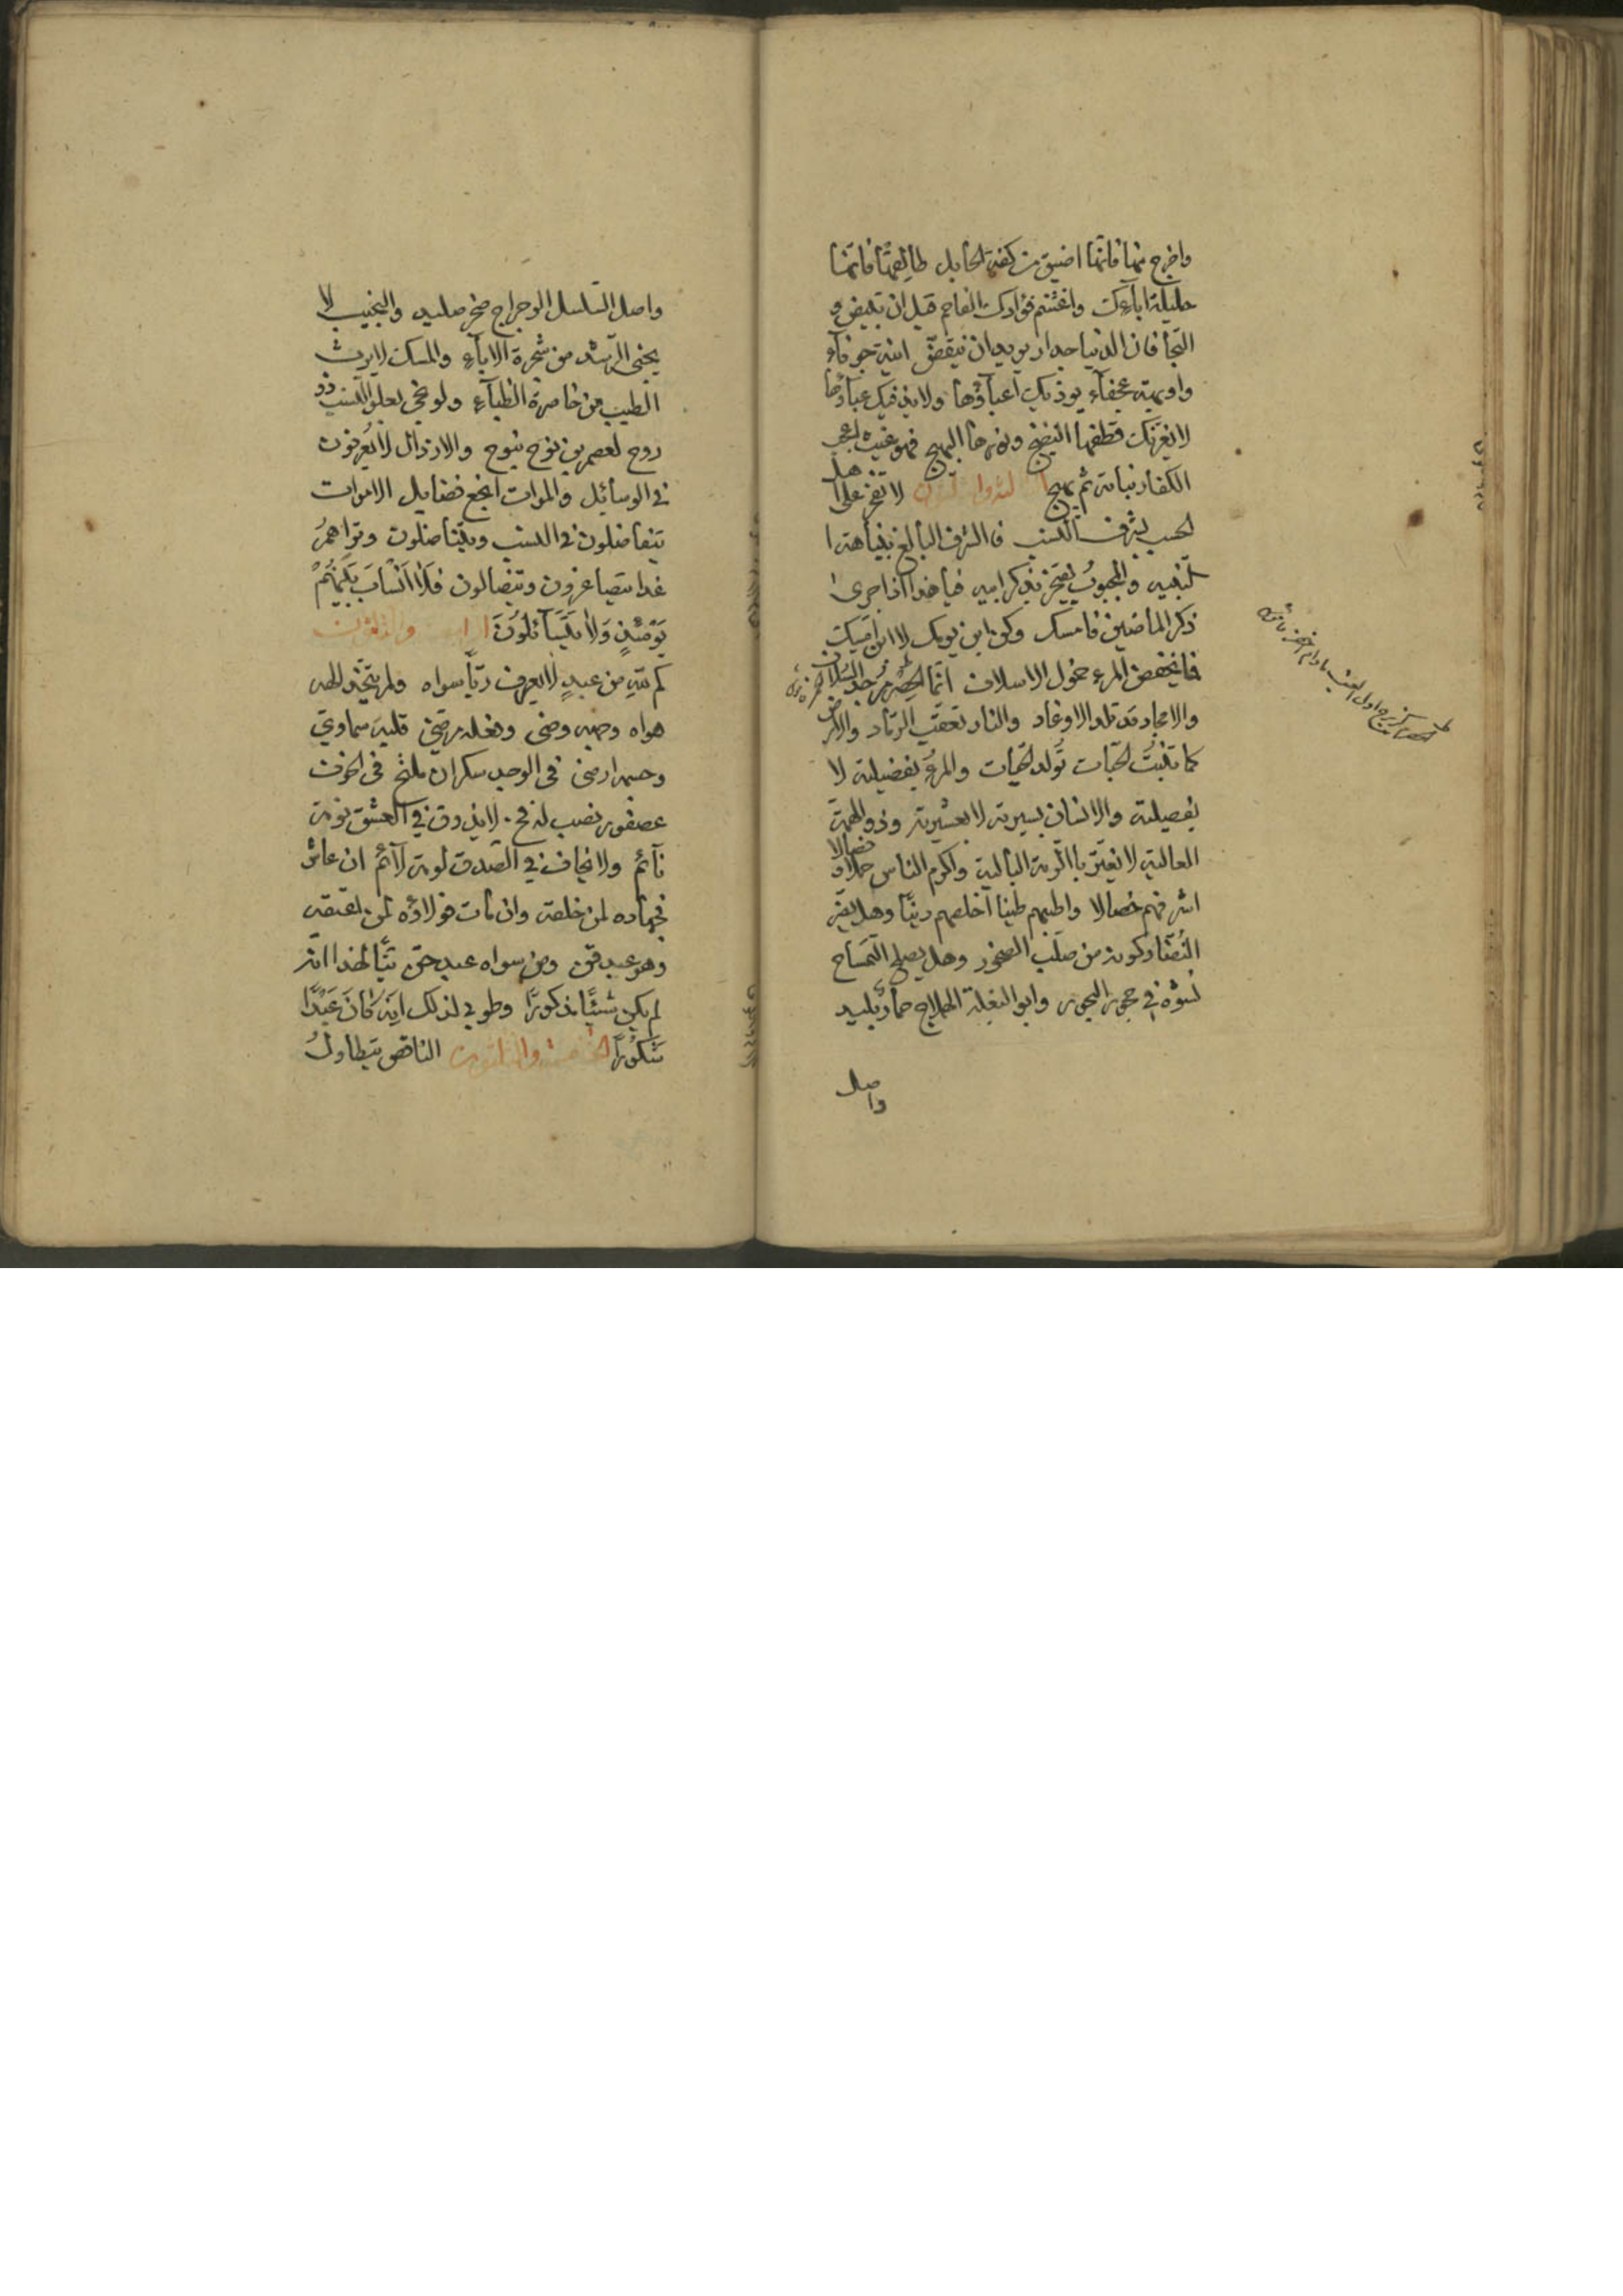 واخرج منها فانها اضيق من كفة الحابل طالقها فانها
حليلة اباءك واغتنم فؤادك الفاحم قبل ان يبيض و
التجأ فان الدنيا جدار يريد ان ينقض ابنة جوفاء
واديمة عجفاء يوذيك اعباؤها ولا يدفيك عباؤها
لا يغرنك قطفها النضيج ونورها البهيج فهو غيث اعجب
الكفار نباته ثم يهيج لا تفخر على اهل
الحسب بشرف النسب فالشرف البالغ بنباهة
لنفسه والمحجوب يفتخر بذكر ابيه فيا هذا اذا جرى
ذكر الماضين فامسك وكن ابن يومك لا ابن امسك
فانخفض المرء خمول الاسلاف انما الحصرم جد السلاف
والامجاد قد تلد الاوغاد والنار تعقب الرماد والارض
كما تنبت الحبات تولد الحيات والمرء بفضيلته لا
بفصيلته والانسان بسيرته لا بعشيرته وذو الهمة
العالية لا يغتر بالرمة البالية واكرم الناس خلالا
اشرفهم خصالا واطيبهم طينا اخلصهم دينا وهل يضر
النضار كونه من صلب الصخور وهل يصلح التمساح
نشوه في حجور البحور وابو البغلة الهملاج حمار بليد
واصل
واصل السلسل الوجراج صخر صليد والنجيب لا
يجنى الرشد من شجرة الاباء والمسك لا يرث
الطيب من خاصرة الظباء ولو ضحى لعلو النسب ذو
روح لعصم بن نوح بنوح والارذال لا يعرفون
في الوسائل والموات انجع فضايل الاموات
يتفاضلون في النسب ويتناضلون وتراهم
غدا يتصاغرون ويتضالون فلا انساب بينهم
يومئذ ولا يتساءلون الرابعة والثلثون
كم لله من عبد لا يعرف ربا سواه ولم يتخذ الهه
هواه وجهه وضى وفعله مرضى قلبه سماوى
وجسمه ارضى فى الوجد سكران ملتخ فى الخوف
عصفور نصب له فخ. لا يذوق في العشق نومة
نائم ولا يخاف في الصدق لومة لائم ان عاش
فجهاده لمن خلقه وان مات فولاؤه لمن اعتقه
وهو عبد قن ومن سواه عبد حق تبا لهذا انه
لم يكن شيئا مذكورا وطوبى لذلك انه كان عبدا
شكورا الخامسة والثلثون الناقص يتطاول